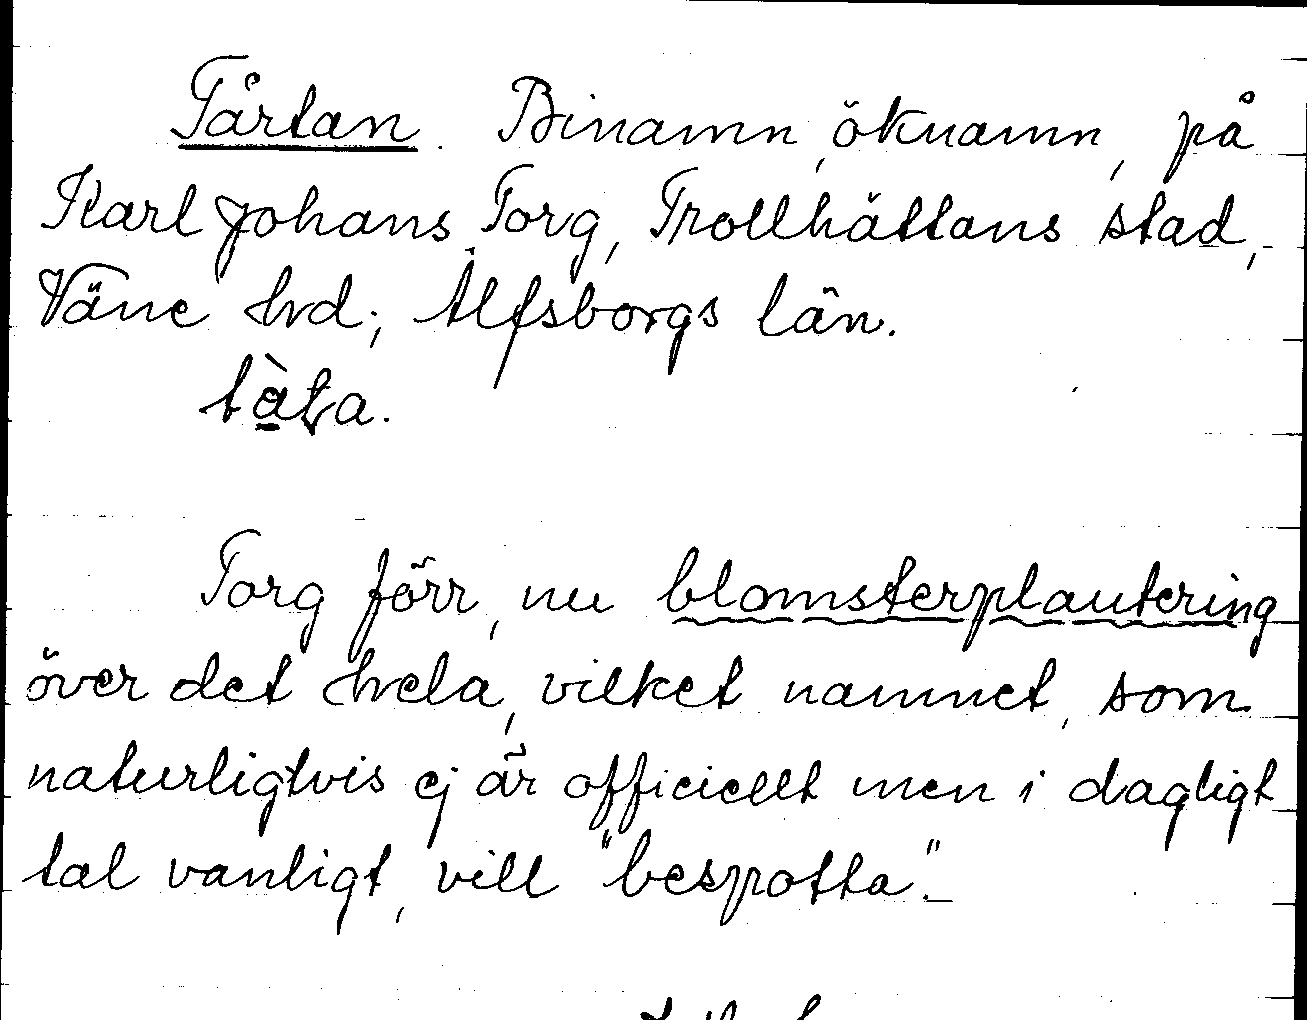 Tårtan. Binamn, öknamn, på
Karl Johans Torg, Trollhättans stad,
Väne hrd; Älfsborgs län.
Torg förr, nu blomsterplantering
över det hela, vilket namnet, som
naturligtvis ej är officiellt men i dagligt
tal vanligt, vill "bespotta".